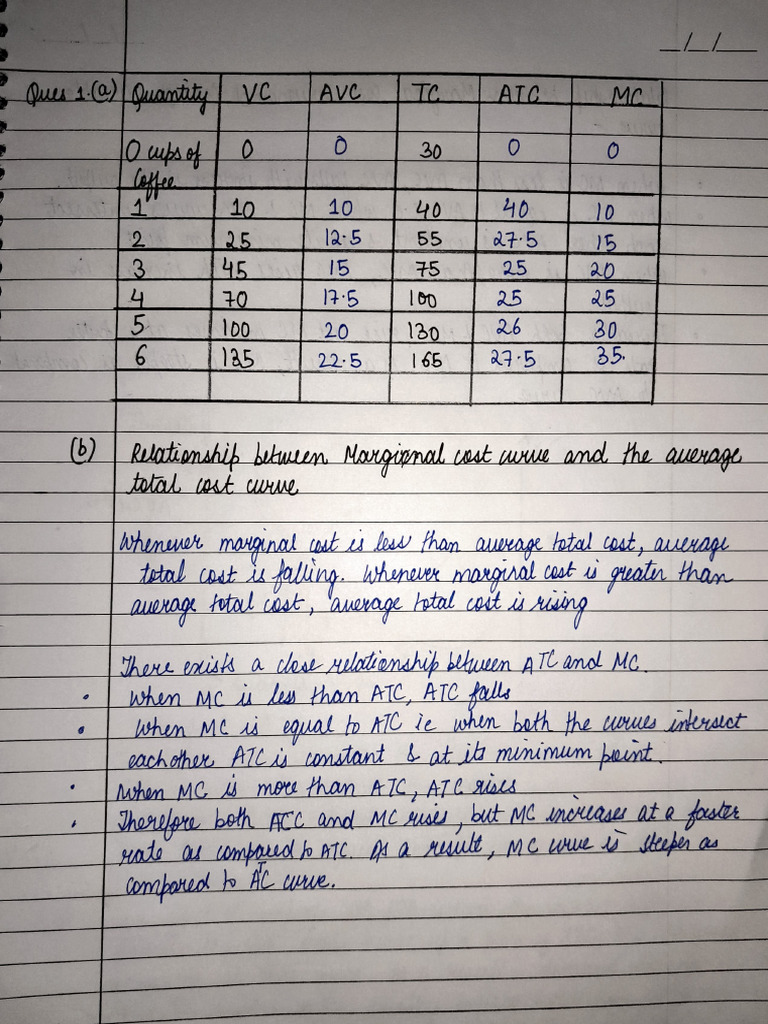 _/_/_
Ques 1.(a) Quantity VC AVC TC ATC MC
0 cups of 0 0 30 0 0
Coffee
1 10 10 40 40 10
2 25 12.5 55 27.5 15
3 45 15 75 25 20
4 70 17.5 100 25 25
5 100 20 130 26 30
6 135 22.5 165 27.5 35.
(b) Relationship between Marginal cost curve and the average
total cost curve
Whenever marginal cost is less than average total cost, average
total cost is falling. Whenever marginal cost is greater than
average total cost, average total cost is rising
There exists a close relationship between ATC and MC.
• When MC is less than ATC, ATC falls
• When MC is equal to ATC ie when both the curves intersect
eachother ATC is constant & at its minimum point.
• When MC is more than ATC, ATC rises
• Therefore both ACC and MC rises, but MC increases at a faster
rate as compared to ATC. As a result, MC curve is steeper as
compared to ATC curve.